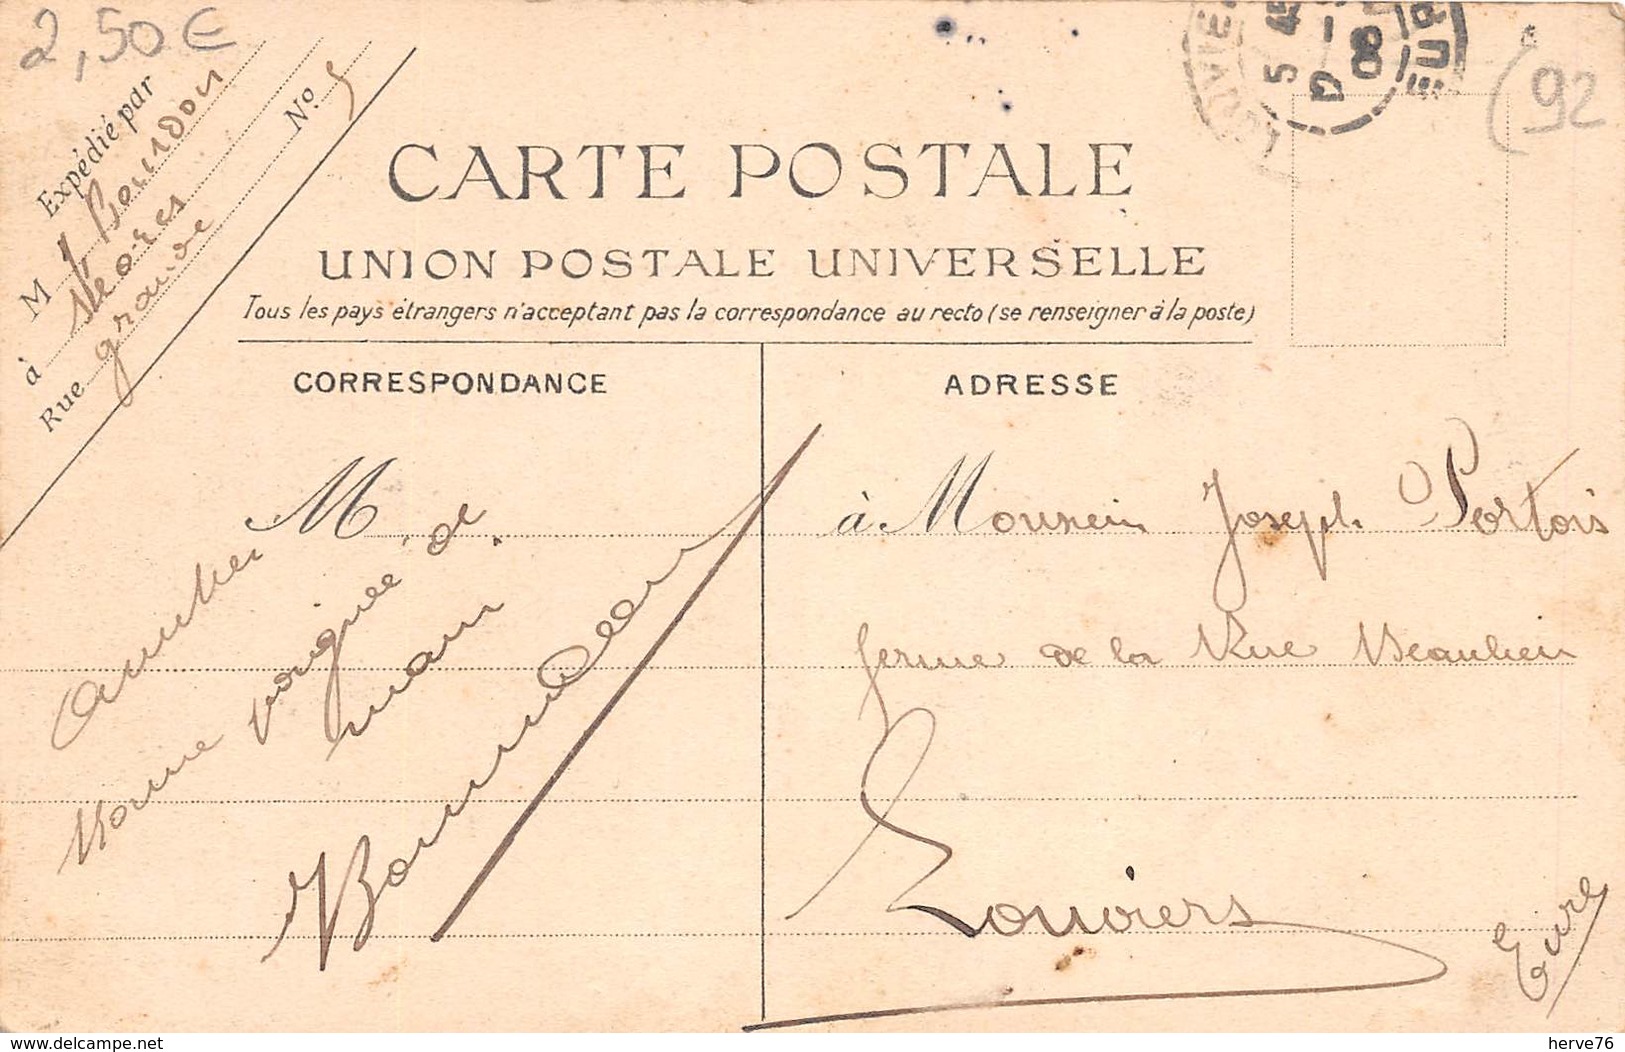 2,50€
(92
LOUVIERS
5 45
08
EURE
Expédié par
M J Bourdon
à Sèvres
Rue grande No 5
CARTE POSTALE
UNION POSTALE UNIVERSELLE
Tous les pays étrangers n'acceptant pas la correspondance au recto (se renseigner à la poste)
CORRESPONDANCE
ADRESSE
M
amitiés
Bonne poignée de
main
à Monsieur Joseph Portois
ferme de la Rue Beaulieu
Louviers
Eure
www.delcampe.net
herve76